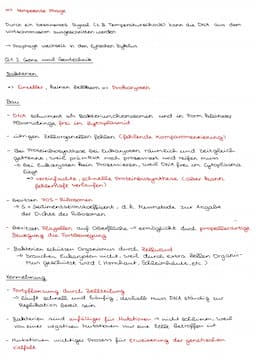 => temperente Phage
Durch ein bestimmtes Signal (z.B. Temperaturschock) kann die DNA aus dem
Wirtschromosom ausgeschnitten werden
-> Prophage wechselt in den lytischen Zyklus
Q1.1 Gene und Gentechnik
Bakterien
=> Einzeller, keinen Zellkern => Prokaryoten
Bau
- DNA schwimmt als Bakterienchromosom und in Form kleiner
Plasmidringe frei im Cytoplasma
- übrigen Zellorganellen fehlen (fehlende Kompartimentierung)
- Bei Proteinbiosynthese bei Eukaryoten räumlich und zeitlich
getrennt, weil prämRNA noch prozessiert und reifen muss
-> bei Eukaryoten kein Prozessieren, weil DNA frei im Cytoplasma
liegt
=> vereinfachte, schnelle Proteinbiosynthese (aber kann
fehlerhaft verlaufen)
- besitzen 70S-Ribosomen
-> S = Sedimentationskoeffizient, d.h. Maßstab zur Angabe
der Dichte der Ribosomen
- Besitzen Flagellen auf Oberfläche -> ermöglicht durch propellerartige
Bewegung die Fortbewegung
- Bakterien schützen Organismus durch Zellwand
-> brauchen Eukaryoten nicht, weil durch extra Zellen Organis-
mus geschützt wird (Hornhaut, Schleimhäute, etc.)
Vermehrung
- Fortpflanzung durch Zellteilung
-> läuft schnell und häufig, deshalb muss DNA ständig zur
Replikation bereit sein
- Bakterien sind anfälliger für Mutationen -> nicht schlimm, weil
von einer negativen Mutation nur eine Zelle betroffen ist
- Mutationen wichtiger Prozess für Erweiterung der genetischen
Vielfalt